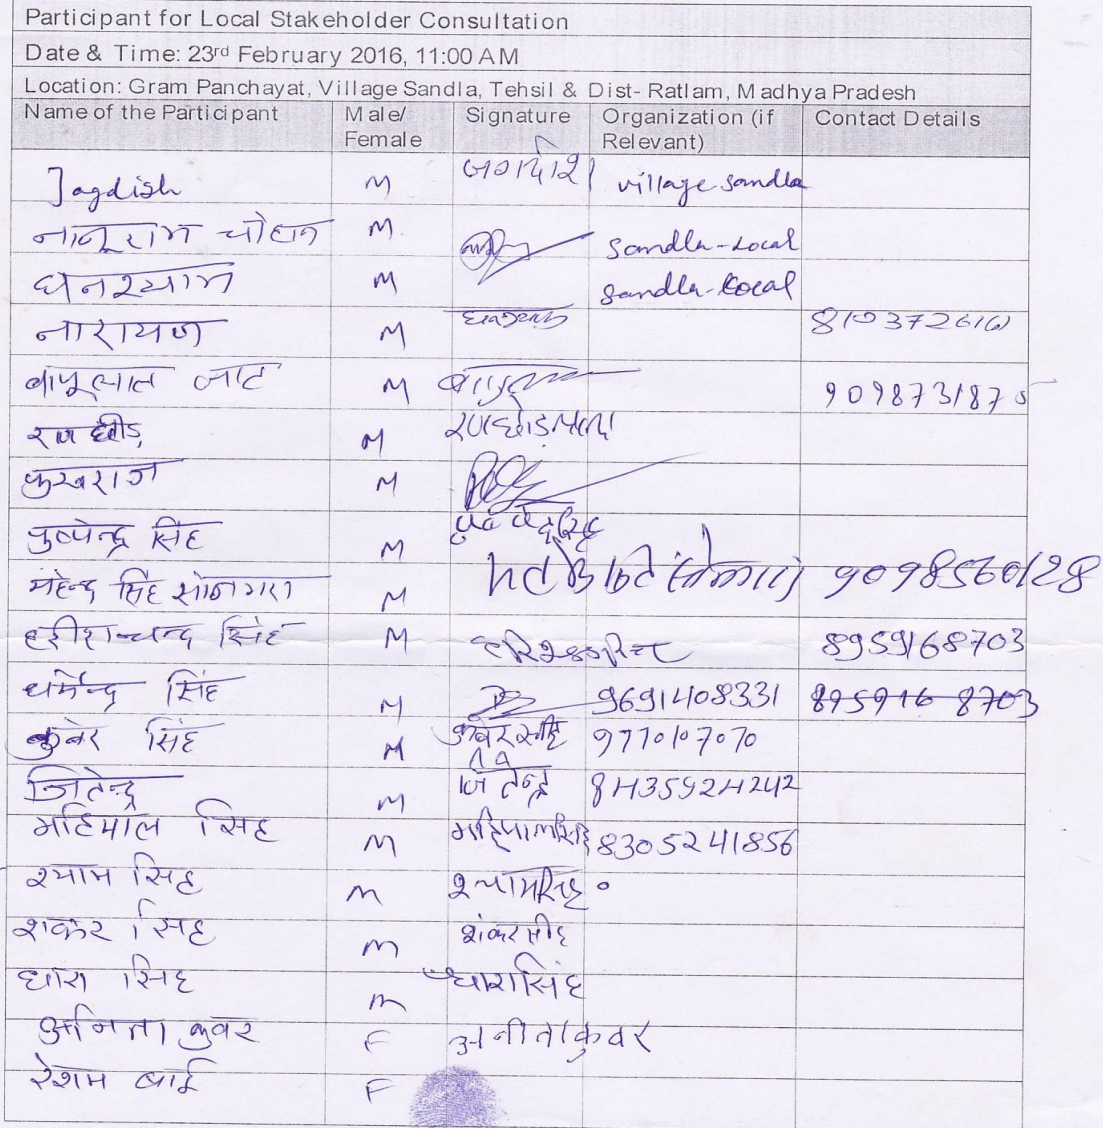 Participant for Local Stakeholder Consultation
Date & Time: 23rd February 2016, 11:00 AM
Location: Gram Panchayat, Village Sandla, Tehsil & Dist- Ratlam, Madhya Pradesh
Name of the Participant Male/ Female Signature Organization (if Relevant) Contact Details
Jagdish M village sandla
नानूराम चौहान M Sandla-Local
घनश्याम M Sandla-Local
नारायण M
बापूलाल जाट M 9098731875
रणछोड़ M
पुखराज M
पुष्पेन्द्र सिंह M
महेन्द्र सिंह सोनगरा M 9098560128
हरीशचन्द्र सिंह M 8959168703
धर्मेन्द्र सिंह M 9691408331 8959168703
कुबेर सिंह M 9770107070
जितेन्द्र M जितेन्द्र
महिपाल सिंह M महिपालसिंह 8305241856
श्याम सिंह M श्यामसिंह
शंकर सिंह M शंकरसींह
धारा सिंह M धारासिंह
अनिता कुवर F अनीताकुवर
रेशम बाई F